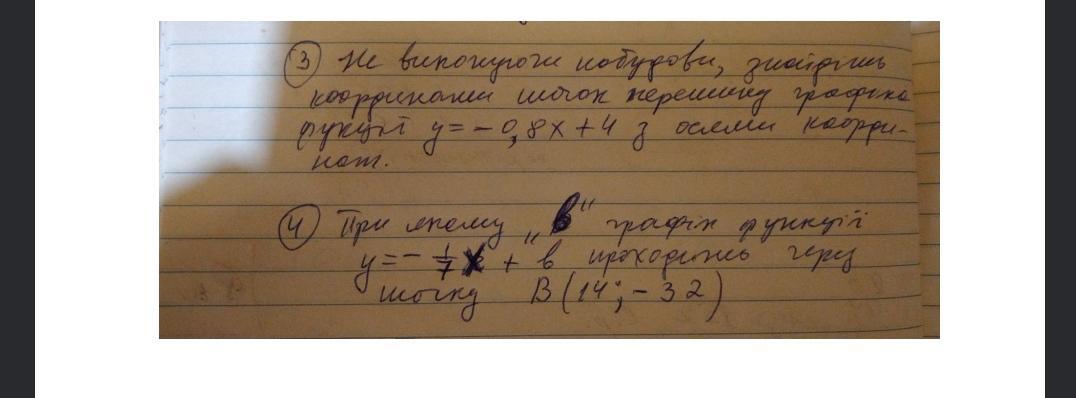 3 Не виконуючи побудови, знайдіть
координати точок перетину графіка
функції y = - 0,8x + 4 з осями коорди-
нат.
4 При якому „в“ графік функції
y = - 1/7 x + в проходить через
точку В (14 ; - 32)